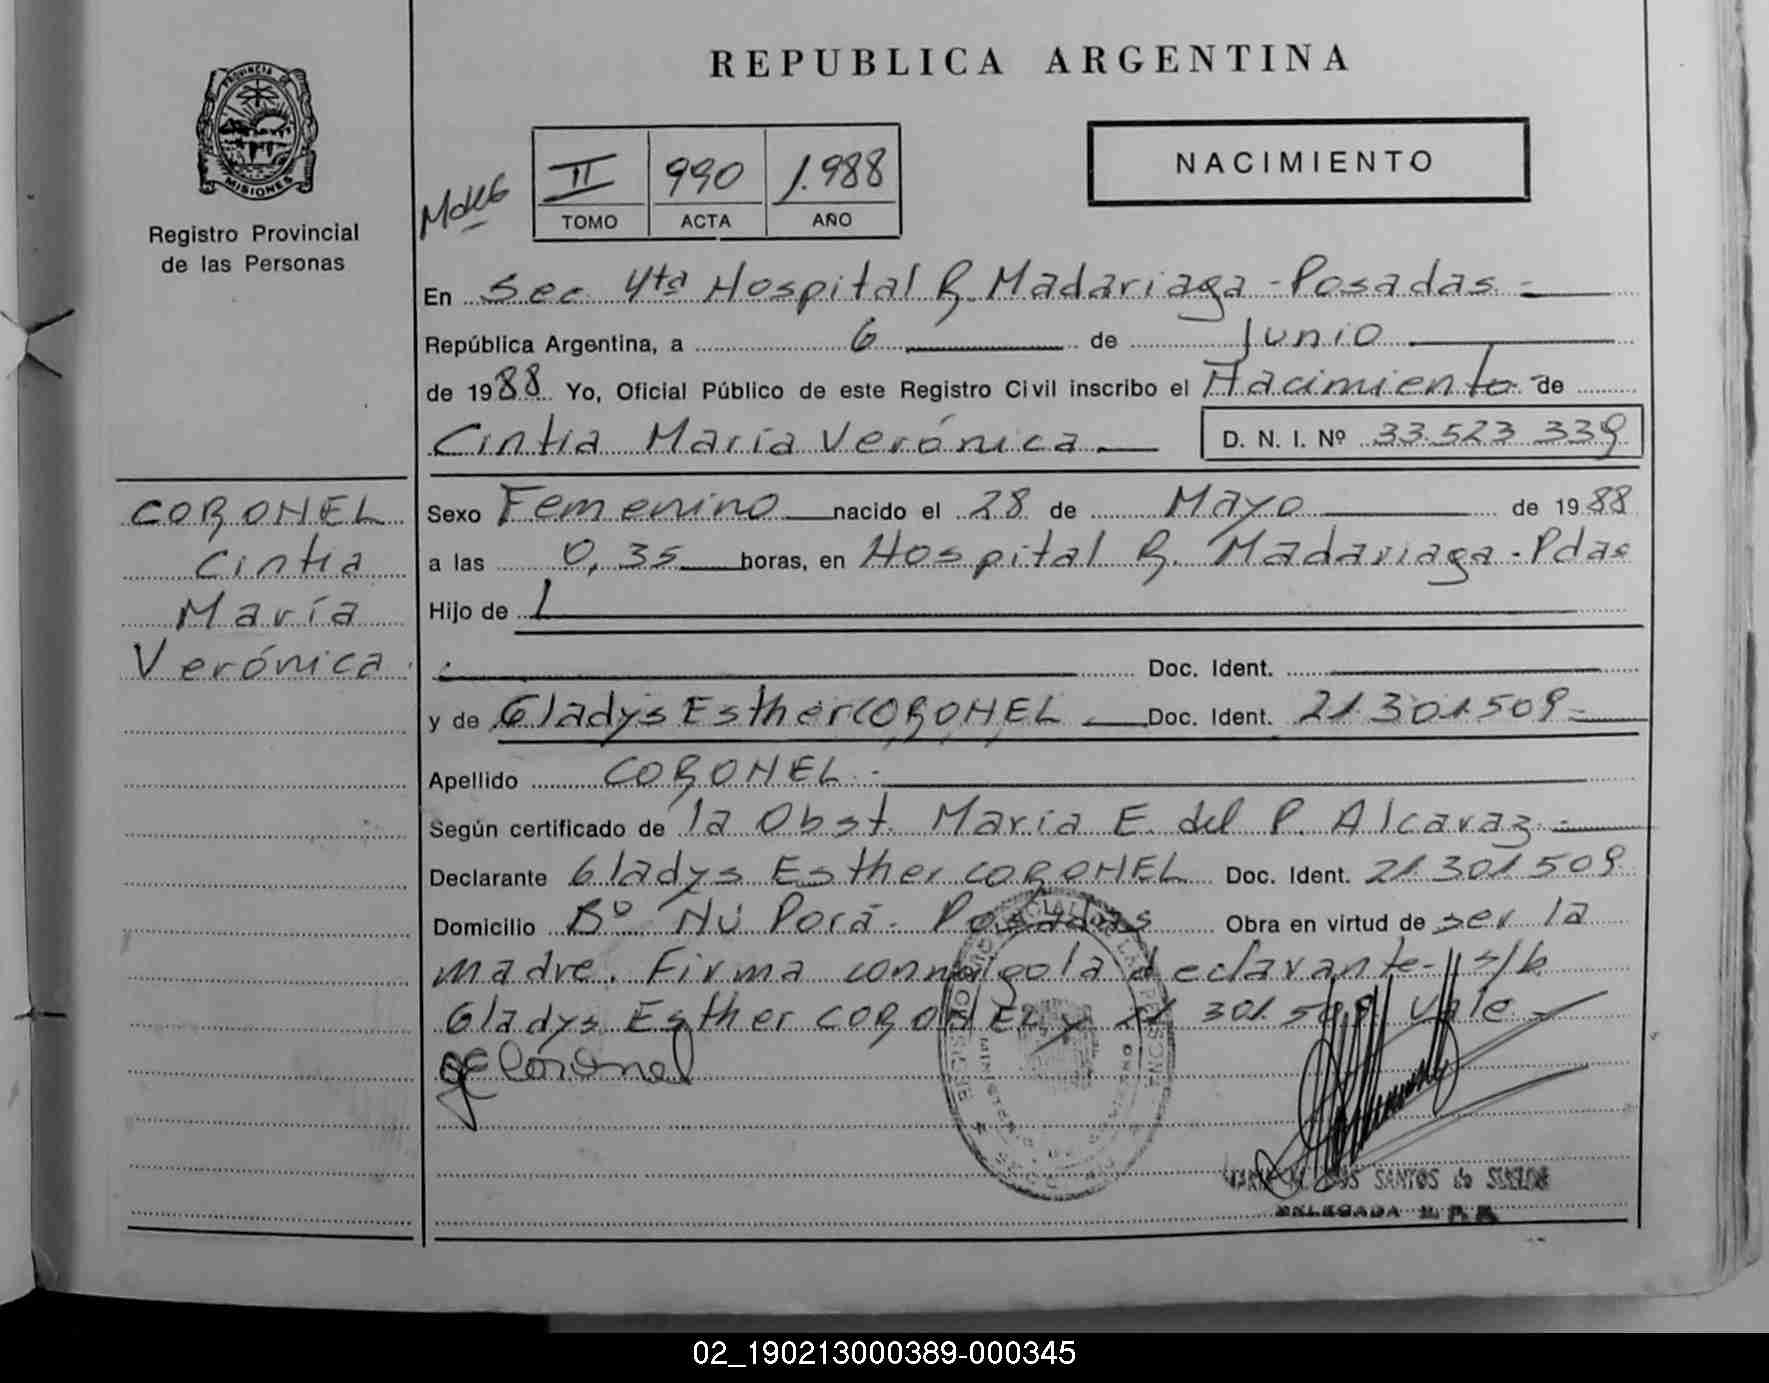 REPUBLICA ARGENTINA
PROVINCIA DE
MISIONES
Registro Provincial
de las Personas
II 990 1.988
TOMO ACTA AÑO
NACIMIENTO
En Sec 4ta Hospital R. Madariaga - Posadas -
República Argentina, a 6 de Junio
de 1988 Yo, Oficial Público de este Registro Civil inscribo el Nacimiento de
Cintia María Verónica D. N. I. Nº 33.523 339
CORONEL
Cintia
María
Verónica
Sexo Femenino nacido el 28 de Mayo de 1988
a las 0,35 horas, en Hospital R. Madariaga - Pdas
Hijo de
Doc. Ident.
y de Gladys Esther CORONEL Doc. Ident. 21.301.509 -
Apellido CORONEL -
Según certificado de la Obst. María E. del P. Alcaraz -
Declarante Gladys Esther CORONEL Doc. Ident. 21.301.509
Domicilio Bº Ñú Porá - Posadas Obra en virtud de ser la
madre. Firma conmigo la declarante - s/b
Gladys Esther CORONEL y 21 301.509 Vale -
GE Coronel
DOS SANTOS de
DELEGADA
02_190213000389-000345